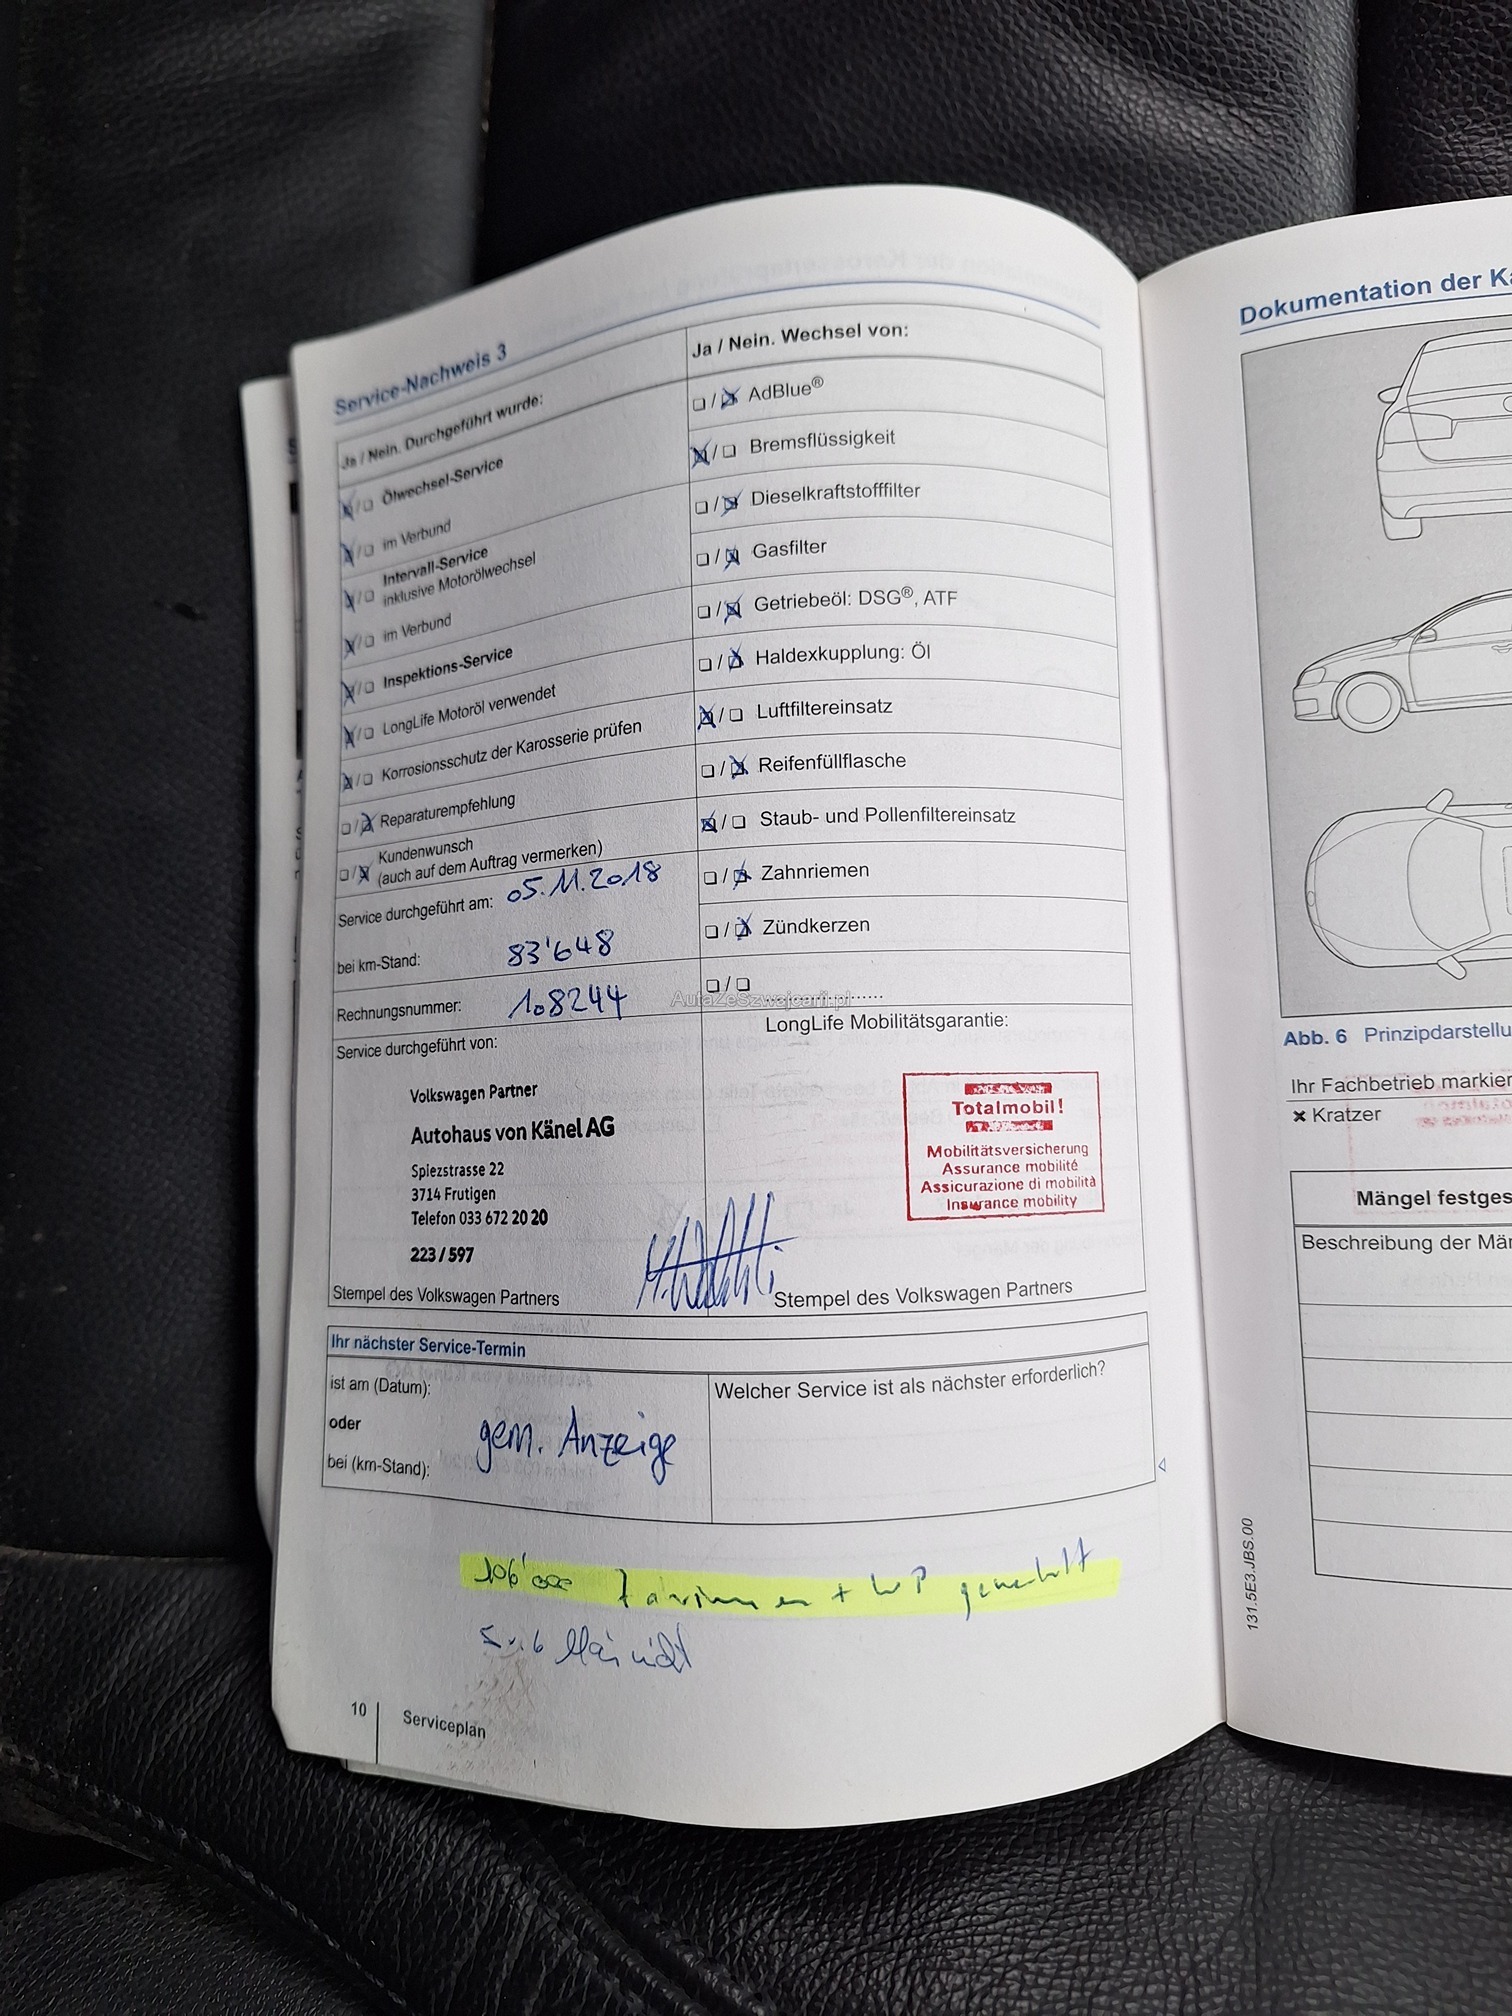 Service-Nachweis 3
Ja / Nein. Durchgeführt wurde:
Ölwechsel-Service
im Verbund
Intervall-Service
inklusive Motorölwechsel
im Verbund
Inspektions-Service
LongLife Motoröl verwendet
Korrosionsschutz der Karosserie prüfen
Reparaturempfehlung
Kundenwunsch
(auch auf dem Auftrag vermerken)
Service durchgeführt am: 05.11.2018
bei km-Stand: 83'648
Rechnungsnummer: 108244
Ja / Nein. Wechsel von:
AdBlue®
Bremsflüssigkeit
Dieselkraftstofffilter
Gasfilter
Getriebeöl: DSG®, ATF
Haldexkupplung: Öl
Luftfiltereinsatz
Reifenfüllflasche
Staub- und Pollenfiltereinsatz
Zahnriemen
Zündkerzen
AutaZeSzwajcarii.pl
Service durchgeführt von:
Volkswagen Partner
Autohaus von Känel AG
Spiezstrasse 22
3714 Frutigen
Telefon 033 672 20 20
223 / 597
Stempel des Volkswagen Partners
LongLife Mobilitätsgarantie:
Totalmobil!
Mobilitätsversicherung
Assurance mobilité
Assicurazione di mobilità
Insurance mobility
Stempel des Volkswagen Partners
Ihr nächster Service-Termin
ist am (Datum):
oder
bei (km-Stand):
gem. Anzeige
Welcher Service ist als nächster erforderlich?
106'000 + WP
10
Serviceplan
Dokumentation der Ka
Abb. 6 Prinzipdarstellu
Ihr Fachbetrieb markier
× Kratzer
Mängel festges
Beschreibung der Män
131.5E3.JBS.00